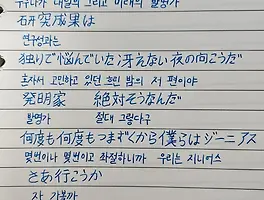 우리가 내일의 그리고 미래의 발명가
研究成果は
연구성과는
独りで悩んでいた冴えない夜の向こうだ
혼자서 고민하고 있던 흐린 밤의 저 편이야
発明家 絶対そうなんだ
발명가 절대 그렇다구
何度も何度もつまずくから僕らはジーニアス
몇번이나 몇번이고 좌절하니까 우리는 지니어스
さあ行こうか
자 가볼까